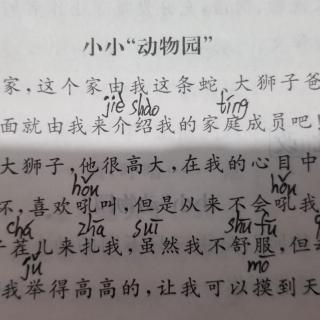 小小“动物园”
家，这个家由我这条蛇，大狮子爸
jiè shào tíng
面就由我来介绍我的家庭成员吧！
大狮子，他很高大，在我的心目中
hǒu hǒu
坏，喜欢吼叫，但是从来不会吼我
chá zhā suī shū fu
子茬儿来扎我，虽然我不舒服，但
jǔ mō
我举得高高的，让我可以摸到天